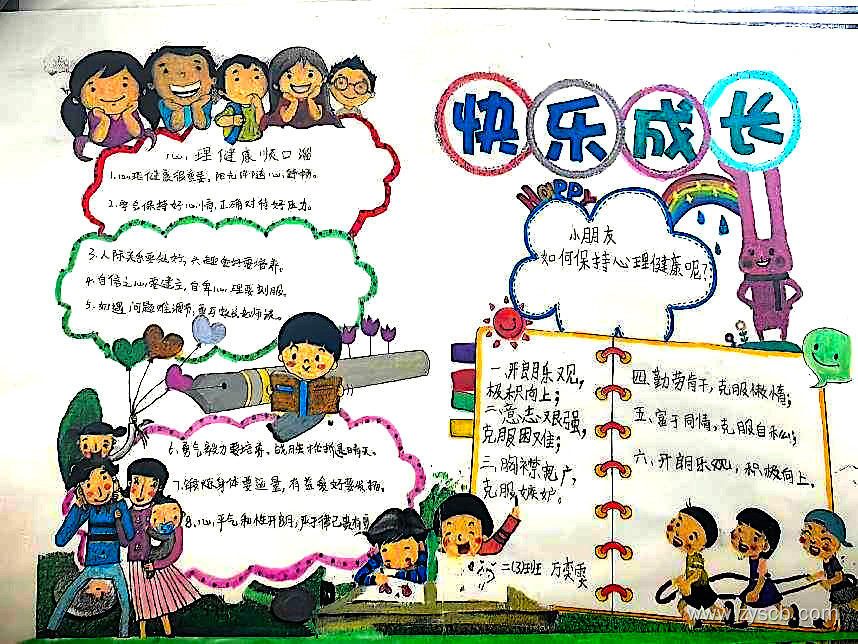 快乐成长
HAPPY
心理健康顺口溜
1.心理健康很重要,阳光伴随心舒畅。
2.学会保持好心情,正确对待好压力。
3.人际关系要处好,兴趣爱好要培养。
4.自信之心要建立,自卑心理要割服。
5.如遇问题难调节,要与家长老师谈。
6.勇气毅力要培养,战胜挫折是晴天。
7.锻炼身体要适量,有益爱好要发扬。
8.心平气和性开朗,严于律己
小朋友
如何保持心理健康呢?
一.开朗乐观,
极积向上;
二.意志坚强,
克服困难;
三.胸襟宽广,
克服嫉妒。
四.勤劳肯干,克服懒惰;
五.富于同情,克服自私;
六.开朗乐观,积极向上。
二(3)班 万奕雯
www.zyscb.com